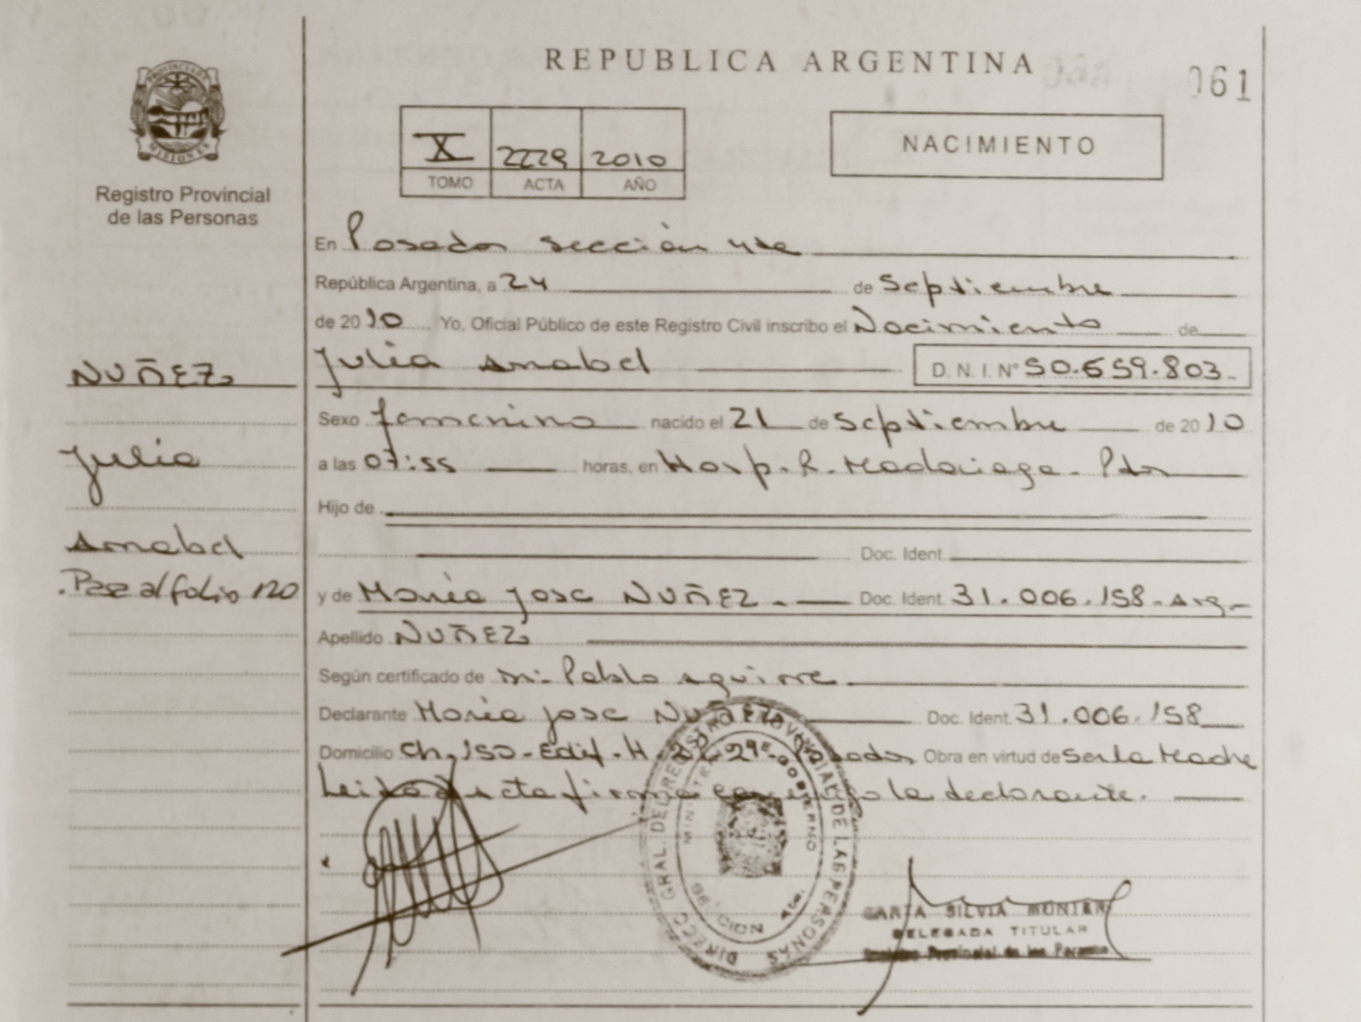 REPUBLICA ARGENTINA
061
PROVINCIA DE MISIONES
Registro Provincial
de las Personas
X 2229 2010
TOMO ACTA AÑO
NACIMIENTO
En Posadas sección 4ta
República Argentina, a 24 de Septiembre
de 2010 Yo, Oficial Público de este Registro Civil inscribo el Nacimiento de
Julia Anabel D. N. I. Nº 50.659.803-
Sexo femenino nacido el 21 de Septiembre de 2010
a las 07:55 horas, en Hosp. R. Madariaga - Pdas
Hijo de
Doc. Ident.
y de María José NUÑEZ.- Doc. Ident. 31.006.158-Arg-
Apellido NUÑEZ
Según certificado de Pablo Aguirre
Declarante María José NUÑEZ Doc. Ident. 31.006.158
Domicilio Ch. 150-Edif-H Posadas Obra en virtud de Ser la Madre
Leida acta firma la declarante.
NUÑEZ
Julia
Anabel
.Pase al folio 120
DIREC. GRAL. DEL REGISTRO PROVINCIAL DE LAS PERSONAS
GOBIERNO
SECCION 4ta.
SILVIA
DELEGADA TITULAR
Registro Provincial de las Personas